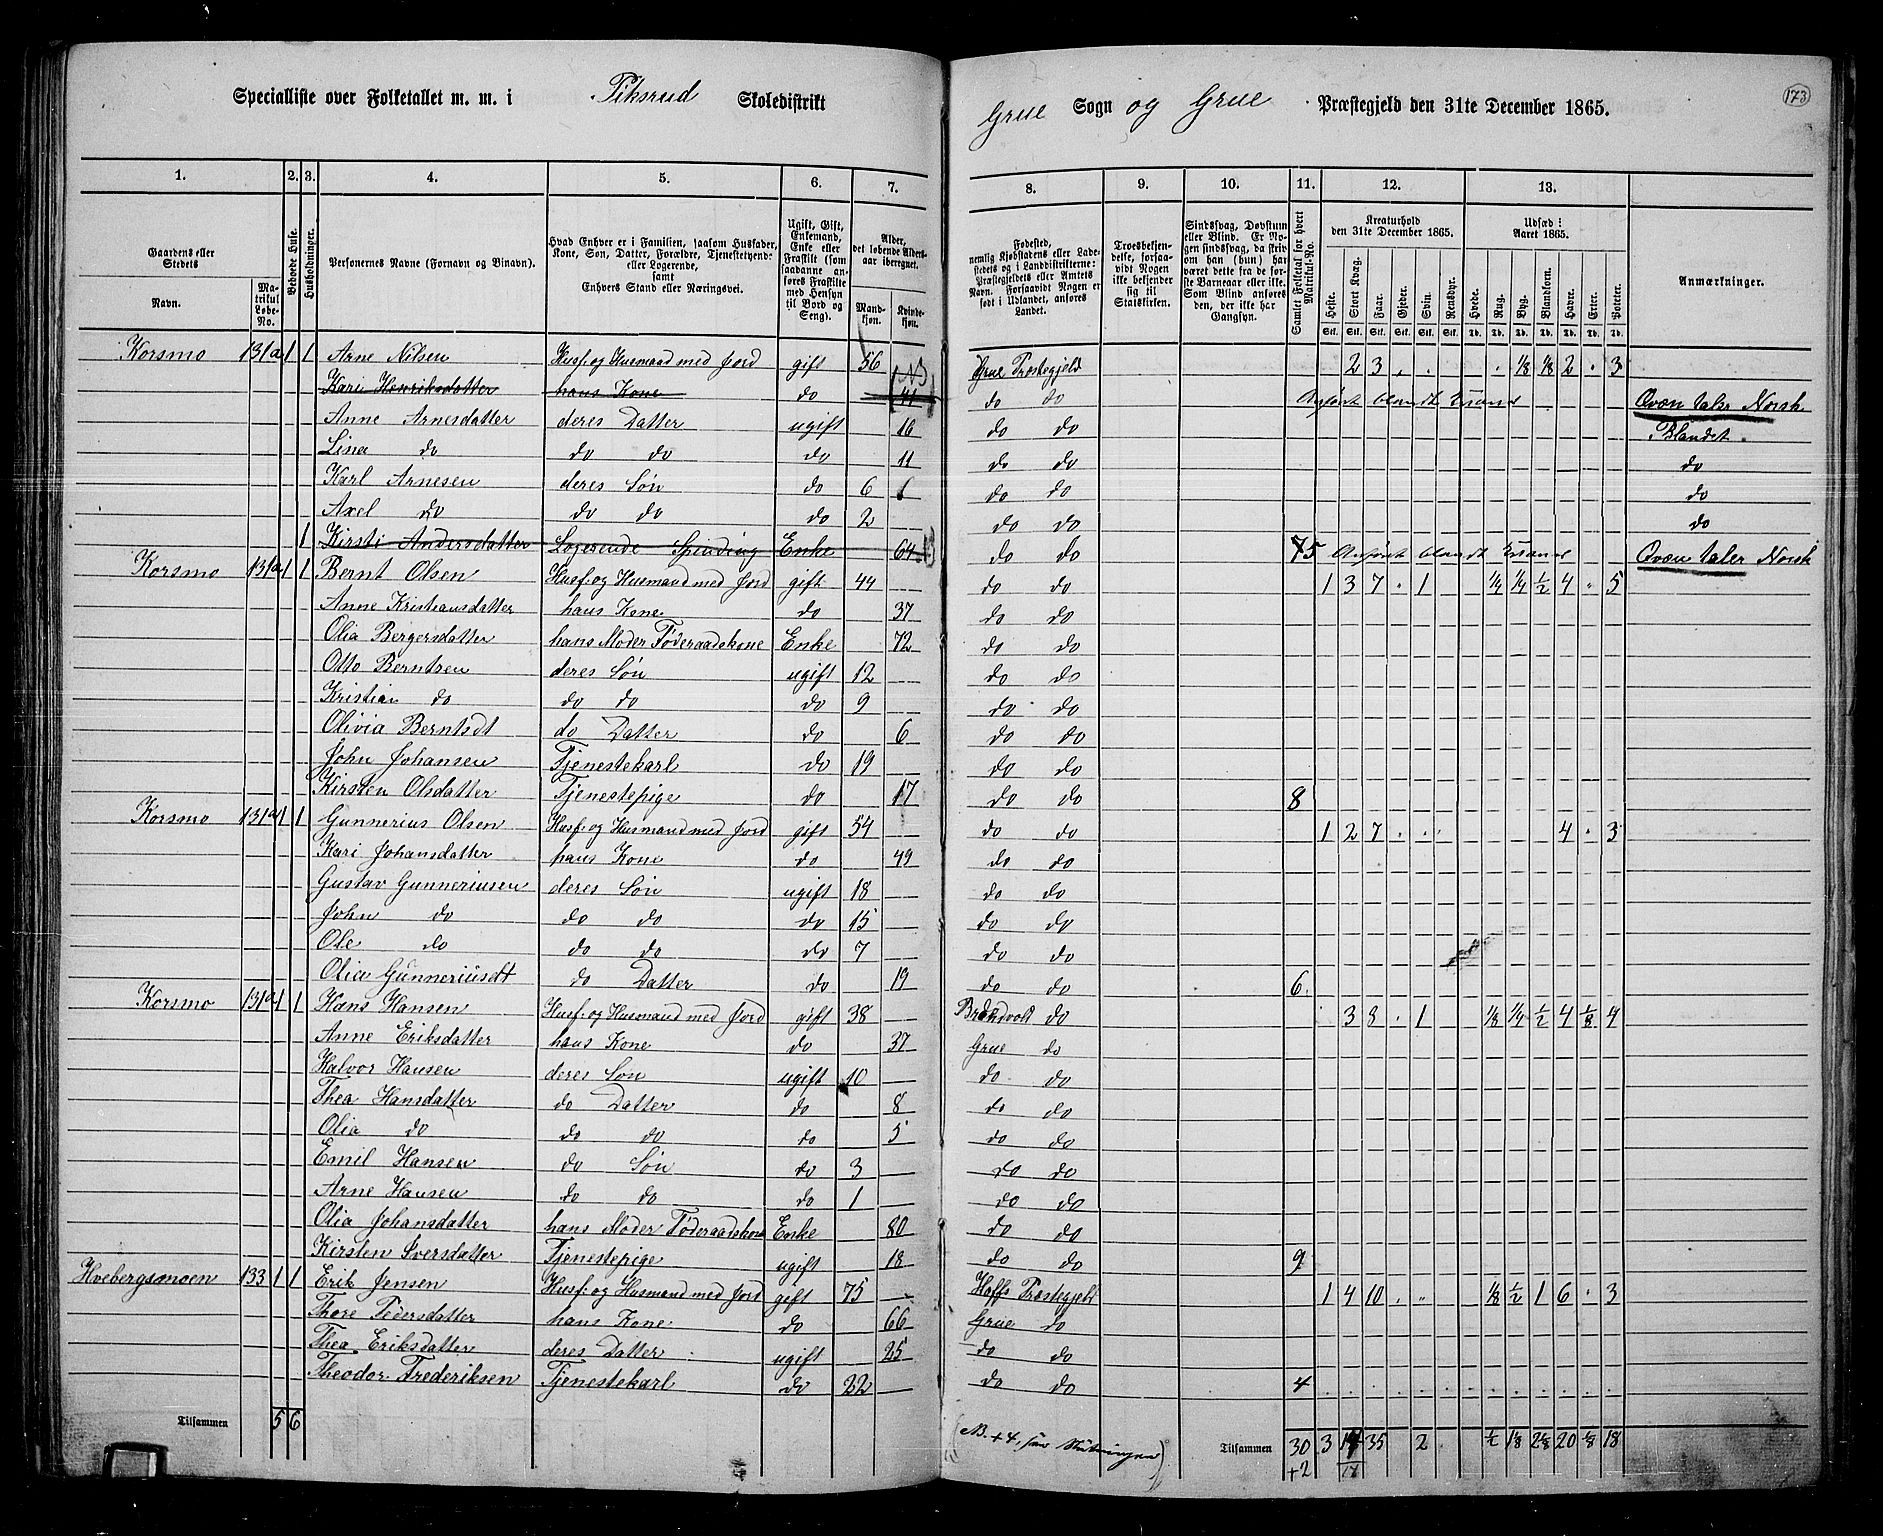 Specialliste over Folketallet m. m. i Piksrud Skoledistrikt
Grue Sogn og Grue Præstegjeld den 31te December 1865.
173
1. 2. 3. 4. 5. 6. 7. 8. 9. 10. 11. 12. 13.
Gaardens eller Stedets
Navn.
Matrikul Løbe-No.
Beboede Huse.
Husholdninger.
Personernes Navne (Fornavn og Binavn).
Hvad Enhver er i Familien, saasom Husfader, Kone, Søn, Datter, Forældre, Tjenestetyende eller Logerende, samt Enhvers Stand eller Næringsvei.
Ugift, Gift, Enkemand, Enke eller Fraskilt (som saadanne anføres Fraskilte med Hensyn til Bord og Seng).
Alder, det løbende Alders-aar iberegnet.
Mandkjøn.
Kvindekjøn.
Fødested, nemlig Kjøbstadens eller Ladestedets og i Landdistrikterne: Præstegjeldets eller Amtets Navn. Forsaavidt Nogen er født i Udlandet, anføres Landet.
Troesbekjendelse, forsaavidt Nogen ikke bekjender sig til Statskirken.
Sindssvag, Døvstum eller Blind. Er Nogen sindssvag, da skriv om han (hun) har været dette fra de første Barneaar eller ikke. Som Blind anføres den, der ikke har Gangsyn.
Samlet Folketal for hvert Matrikul-No.
Kreaturhold den 31te December 1865.
Heste. Stort Kvæg. Faar. Gjeder. Svin. Rensdyr.
Udsæd i Aaret 1865.
Hvede. Rug. Byg. Blandkorn. Havre. Erter. Poteter.
Anmærkninger.
Korsmo 131a 1 1 Arne Nilsen Husf. og Husmand med Jord gift 56 Grue Præstegjeld 2 3 1/8 1/8 2 3
Kari Henriksdatter hans Kone do 41 do do Anført blandt Kvæn Qvæn taler Norsk
Anne Arnesdatter deres Datter ugift 16 do do Blandet
Lina do do do do 11 do do do
Karl Arnesen deres Søn do 6 do do do
Axel do do do do 2 do do do
1 Kirsti Andersdatter Logerende Spinding Enke 64 do do 5 Anført blandt Qvæn taler Norsk
Korsmo 131a 1 1 Bernt Olsen Husf. og Husmand med Jord gift 44 do do 1 3 7 1 1/4 1/4 1/2 4 5
Anne Kristiansdatter hans Kone do 37 do do
Olia Bergersdatter hans Moder Føderaadskone Enke 72 do do
Otto Berntsen deres Søn ugift 12 do do
Kristian do do do do 9 do do
Olivia Berntsdt do Datter do 6 do do
John Johansen Tjenestekarl do 19 do do
Kirsten Olsdatter Tjenestepige do 17 do do 8
Korsmo 131a 1 1 Gunnerius Olsen Husf. og Husmand med Jord gift 54 do do 1 2 7 4 3
Kari Johansdatter hans Kone do 49 do do
Gustav Gunneriusen deres Søn ugift 18 do do
John do do do do 15 do do
Ole do do do do 7 do do
Olia Gunneriusdt do Datter do 19 do do 6
Korsmo 131a 1 1 Hans Hansen Husf. og Husmand med Jord gift 38 Brandvold do 3 8 1 1/8 1/4 1/2 4 1/8 4
Anne Eriksdatter hans Kone do 37 Grue do
Halvor Hansen deres Søn ugift 10 do do
Thea Hansdatter do Datter do 8 do do
Olia do do do do 5 do do
Emil Hansen do Søn do 3 do do
Arne Hansen do do do 1 do do
Olia Johansdatter hans Moder Føderaadskone Enke 80 do do
Kirsten Iversdatter Tjenestepige ugift 18 do do 9
Hvebergsmoen 133 1 1 Erik Jensen Husf. og Husmand med Jord gift 75 Hoffs Præstegjeld 1 4 10 1/8 1/2 1 6 3
Thore Pedersdatter hans Kone do 66 Grue do
Thea Eriksdatter deres Datter ugift 25 do do
Theodor Frederiksen Tjenestekarl do 22 do do 4
Tilsammen 5 6
Tilsammen 30 3 14 35 2 1/2 1 1/8 2 1/8 20 1/8 18
+2 14